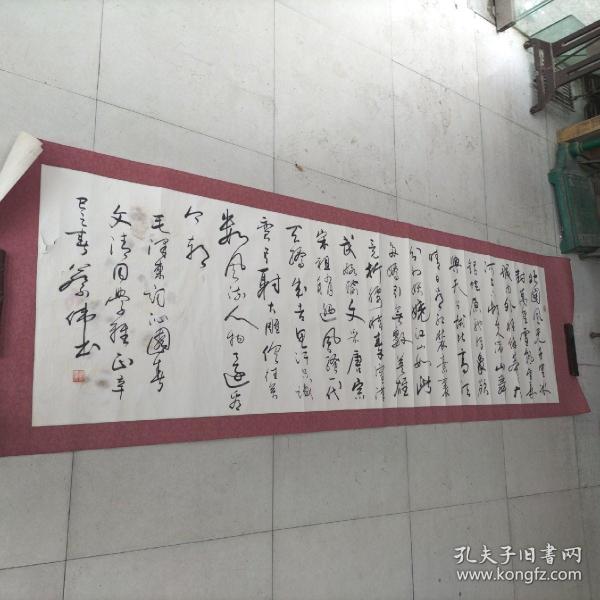 北国风光千里冰
封万里雪飘望长
城内外惟余莽莽大
河上下顿失滔滔山舞
银蛇原驰蜡象欲
与天公试比高须
晴日看红装素裹
分外妖娆江山如此
多娇引无数英雄
竞折腰惜秦皇汉
武略输文采唐宗
宋祖稍逊风骚一代
天骄成吉思汗只识
弯弓射大雕俱往矣
数风流人物还看
今朝
毛泽东词沁园春
文清同学雅正
蔡伟书
孔夫子旧书网
www.kongfz.com